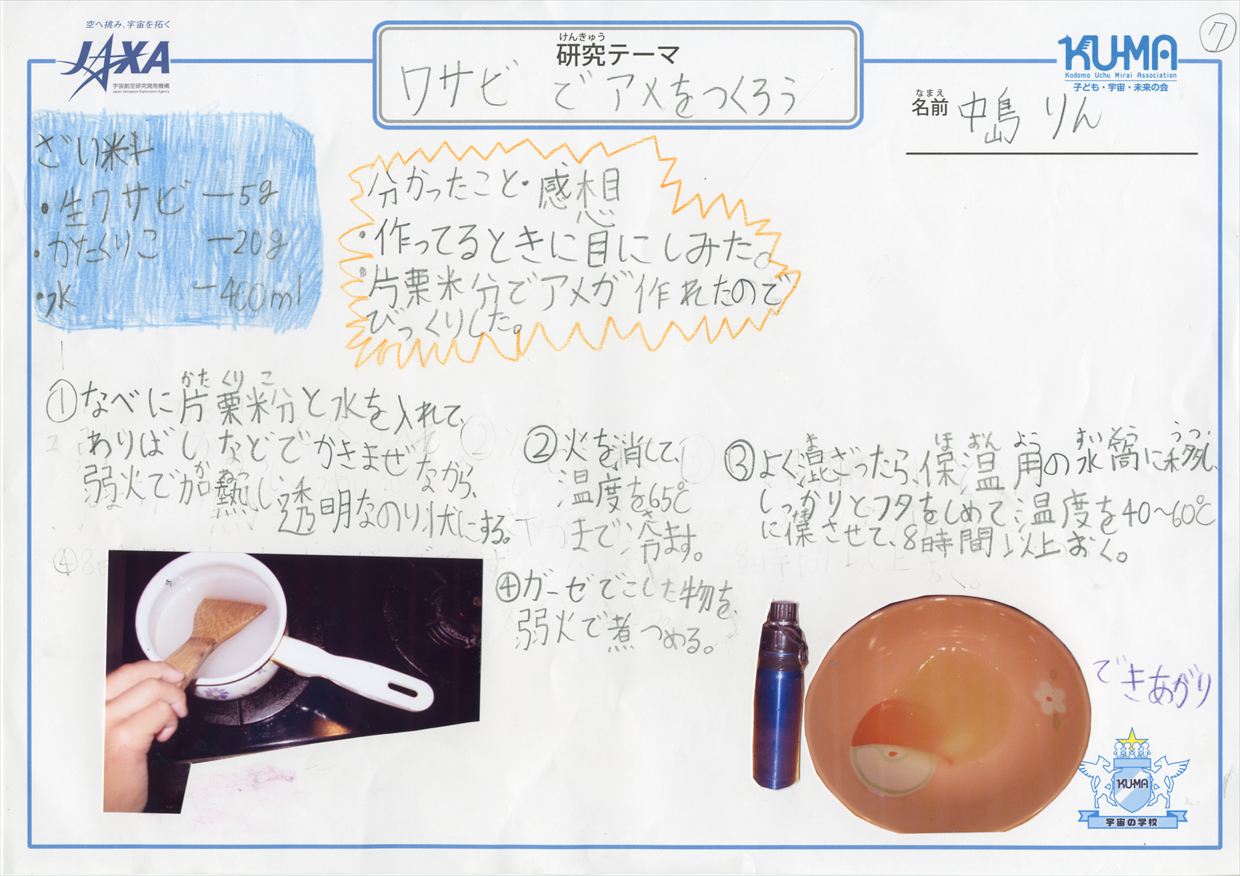 空へ挑み、宇宙を拓く
JAXA
宇宙航空研究開発機構
Japan Aerospace Exploration Agency
けんきゅう
研究テーマ
ワサビでアメをつくろう
KU-MA
Kodomo Uchu Mirai Association
子ども・宇宙・未来の会
7
なまえ
名前 中島 りん
ざい料
・生ワサビ ー5g
・かたくりこ ー20g
・水 ー400ml
分かったこと・感想
・作ってるときに目にしみた。
・片栗粉でアメが作れたので
びっくりした。
かたくりこ
①なべに片栗粉と水を入れて、
わりばしなどでかきまぜながら、
弱火で加熱し、透明なのり状にする。
②火を消して、
温度を65℃
まで冷ます。
③よく混ざったら、保温用の水筒に移し、
しっかりとフタをしめて、温度を40〜60℃
に保させて、8時間以上おく。
④ガーゼでこした物を、
弱火で煮つめる。
できあがり
KU-MA
宇宙の学校